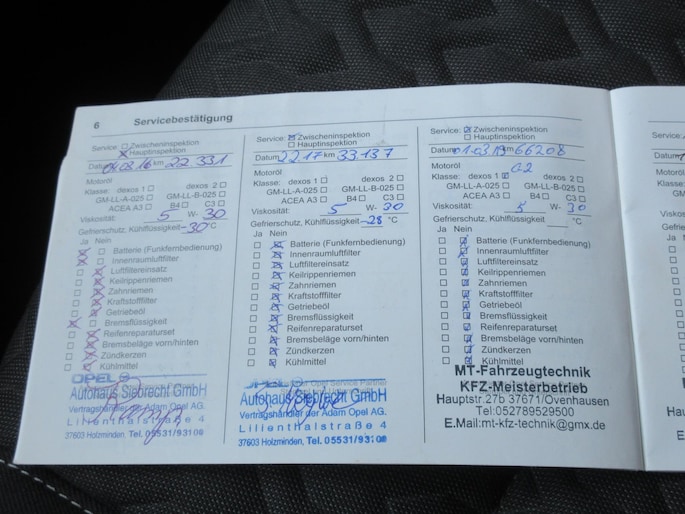 6 Servicebestätigung
Service: Zwischeninspektion
Hauptinspektion
Datum 04.03.16 km 22 331
Motoröl
Klasse: dexos 1 dexos 2
GM-LL-A-025 GM-LL-B-025
ACEA A3 B4 C3
Viskosität: 5 W- 30
Gefrierschutz, Kühlflüssigkeit -30 °C
Ja Nein
Batterie (Funkfernbedienung)
Innenraumluftfilter
Luftfiltereinsatz
Keilrippenriemen
Zahnriemen
Kraftstofffilter
Getriebeöl
Bremsflüssigkeit
Reifenreparaturset
Bremsbeläge vorn/hinten
Zündkerzen
Kühlmittel
OPEL
Autohaus Siebrecht GmbH
Vertragshändler der Adam Opel AG.
Lilienthalstraße 4
37603 Holzminden, Tel. 05531/93100
Service: Zwischeninspektion
Hauptinspektion
Datum 2 2 17 km 33 137
Motoröl
Klasse: dexos 1 dexos 2
GM-LL-A-025 GM-LL-B-025
ACEA A3 B4 C3
Viskosität: 5 W-
Gefrierschutz, Kühlflüssigkeit -28 °C
Ja Nein
Batterie (Funkfernbedienung)
Innenraumluftfilter
Luftfiltereinsatz
Keilrippenriemen
Zahnriemen
Kraftstofffilter
Getriebeöl
Bremsflüssigkeit
Reifenreparaturset
Bremsbeläge vorn/hinten
Zündkerzen
Kühlmittel
OPEL Opel Service Partner
Autohaus Siebrecht GmbH
Vertragshändler der Adam Opel AG.
Lilienthalstraße 4
37603 Holzminden, Tel. 05531/93100
Service: Zwischeninspektion
Hauptinspektion
Datum 01.03.19 km 66208
Motoröl G2
Klasse: dexos 1 dexos 2
GM-LL-A-025 GM-LL-B-025
ACEA A3 B4 C3
Viskosität: 5 W- 30
Gefrierschutz, Kühlflüssigkeit °C
Ja Nein
Batterie (Funkfernbedienung)
Innenraumluftfilter
Luftfiltereinsatz
Keilrippenriemen
Zahnriemen
Kraftstofffilter
Getriebeöl
Bremsflüssigkeit
Reifenreparaturset
Bremsbeläge vorn/hinten
Zündkerzen
Kühlmittel
MT-Fahrzeugtechnik
KFZ-Meisterbetrieb
Hauptstr.27b 37671/Ovenhausen
Tel:052789529500
E.Mail:mt-kfz-technik@gmx.de